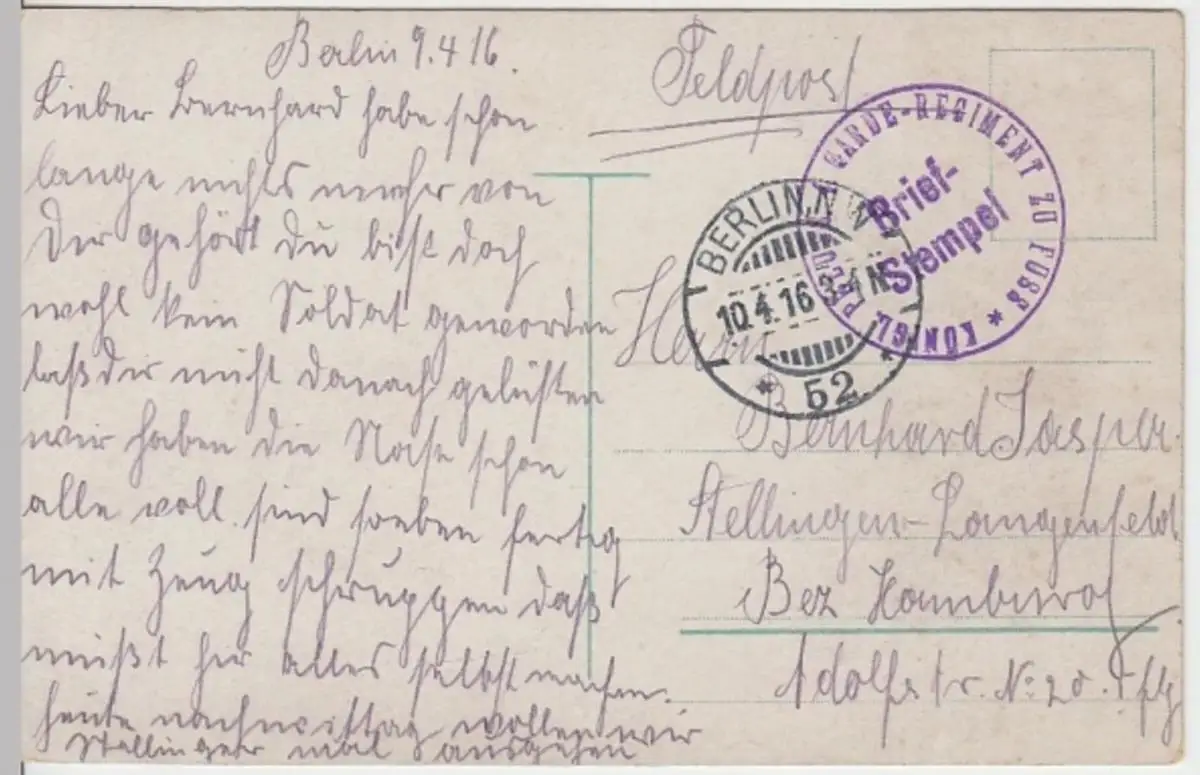 Berlin 9.4.16.
Lieber Bernhard habe schon
lange nichts mehr von
Dir gehört Du bist doch
wohl kein Soldat geworden
laß dir nicht danach gelüsten
wir haben die Nase schon
alle voll. sind soeben fertig
mit Zeug schruppen daß
müßt hir alles selbst machen.
heute nachmittag wollen wir
Stellinger mal ausgehen
Feldpost
GARDE-REGIMENT ZU FUSS * KÖNIGL. PREU
Brief-
Stempel
BERLIN N W
10.4.16 3-4 N
* 52 *
Herrn
Bernhard Jasper.
Stellingen-Langenfeld
Bez Hamburg
Adolfstr. No 20. I. Etg